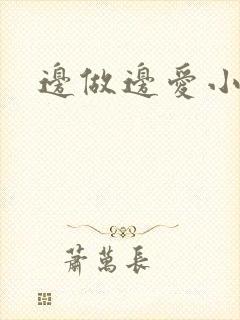 邊做邊愛小
蕭萬長